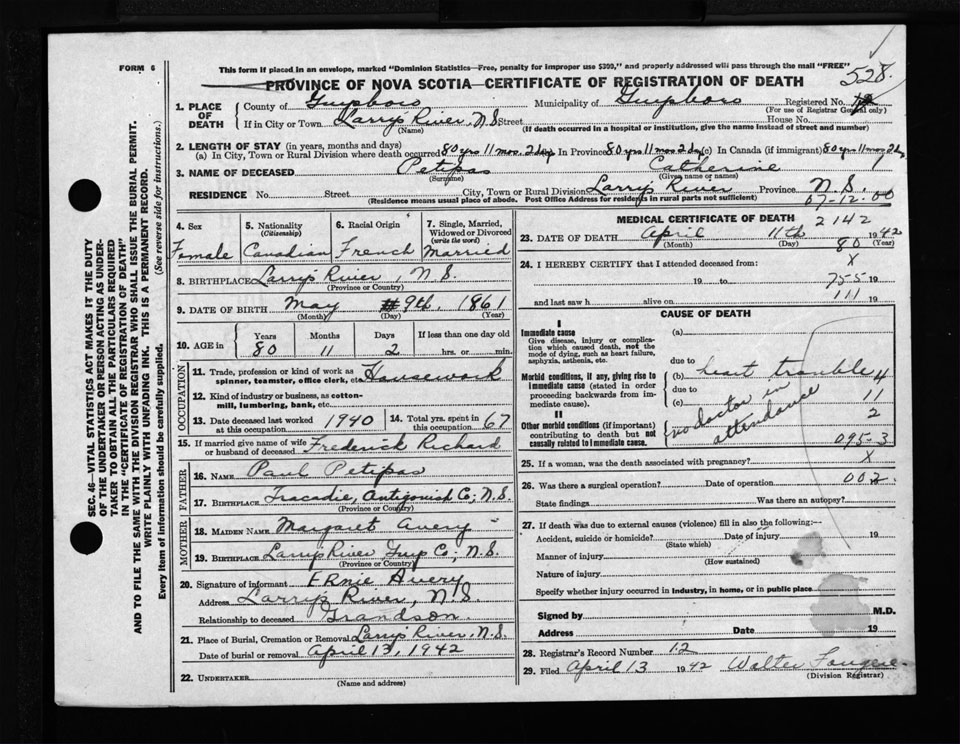 FORM 6
This form if placed in an envelope, marked "Dominion Statistics—Free, penalty for improper use $300," and properly addressed will pass through the mail "FREE"
PROVINCE OF NOVA SCOTIA—CERTIFICATE OF REGISTRATION OF DEATH
528.
1. PLACE OF DEATH
County of Guysboro Municipality of Guysboro Registered No.
(For use of Registrar General only)
If in City or Town Larrys River, N.S. Street House No.
(Name) (If death occurred in a hospital or institution, give the name instead of street and number)
2. LENGTH OF STAY (in years, months and days)
(a) In City, Town or Rural Division where death occurred 80 yrs 11 mos. 2 days In Province 80 yrs 11 mos. 2 days (c) In Canada (if immigrant) 80 yrs 11 mos 2 days
3. NAME OF DECEASED Petipas Catherine
(Surname) (Given name or names)
RESIDENCE No. Street City, Town or Rural Division Larrys River Province N.S.
(Residence means usual place of abode. Post Office Address for residents in rural parts not sufficient) 07-12.00
4. Sex
Female
5. Nationality
(Citizenship)
Canadian
6. Racial Origin
French
7. Single, Married, Widowed or Divorced
(write the word)
Married
8. BIRTHPLACE Larrys River, N.S.
(Province or Country)
9. DATE OF BIRTH May 9th, 1861
(Month) (Day) (Year)
10. AGE in
Years Months Days If less than one day old
80 11 2 hrs. or min.
OCCUPATION
11. Trade, profession or kind of work as spinner, teamster, office clerk, etc. Housework
12. Kind of industry or business, as cotton-mill, lumbering, bank, etc.
13. Date deceased last worked at this occupation 1940
14. Total yrs. spent in this occupation 67
15. If married give name of wife or husband of deceased Frederick Richard
FATHER
16. NAME Paul Petipas
17. BIRTHPLACE Tracadie, Antigonish Co; N.S.
(Province or Country)
MOTHER
18. MAIDEN NAME Margaret Avery
19. BIRTHPLACE Larrys River Guys Co; N.S.
(Province or Country)
20. Signature of informant Ernie Avery
Address Larrys River, N.S.
Relationship to deceased Grandson
21. Place of Burial, Cremation or Removal Larrys River, N.S.
Date of burial or removal April 13, 1942
22. UNDERTAKER
(Name and address)
MEDICAL CERTIFICATE OF DEATH
2142
23. DATE OF DEATH April 11th 1942
(Month) (Day) 80 (Year)
24. I HEREBY CERTIFY that I attended deceased from: X
19 to 755 19
and last saw h alive on 111 19
CAUSE OF DEATH
I
Immediate cause
Give disease, injury or complication which caused death, not the mode of dying, such as heart failure, asphyxia, asthenia, etc.
(a)
due to
Morbid conditions, if any, giving rise to immediate cause (stated in order proceeding backwards from immediate cause).
(b) heart trouble 4
due to
(c) 11
II
Other morbid conditions (if important) contributing to death but not causally related to immediate cause.
no doctor in attendance
2
095-3
25. If a woman, was the death associated with pregnancy? X
26. Was there a surgical operation? Date of operation 002
State findings Was there an autopsy?
27. If death was due to external causes (violence) fill in also the following:—
Accident, suicide or homicide? Date of injury 19
(State which)
Manner of injury
(How sustained)
Nature of injury
Specify whether injury occurred in industry, in home, or in public place
Signed by M.D.
Address Date 19
28. Registrar's Record Number 12
29. Filed April 13 1942 Walter Fougere
(Division Registrar)
SEC. 46—VITAL STATISTICS ACT MAKES IT THE DUTY
OF THE UNDERTAKER OR PERSON ACTING AS UNDER-
TAKER TO OBTAIN ALL THE PARTICULARS REQUIRED
IN THE "CERTIFICATE OF REGISTRATION OF DEATH"
AND TO FILE THE SAME WITH THE DIVISION REGISTRAR WHO SHALL ISSUE THE BURIAL PERMIT.
WRITE PLAINLY WITH UNFADING INK. THIS IS A PERMANENT RECORD.
Every item of information should be carefully supplied. (See reverse side for instructions.)